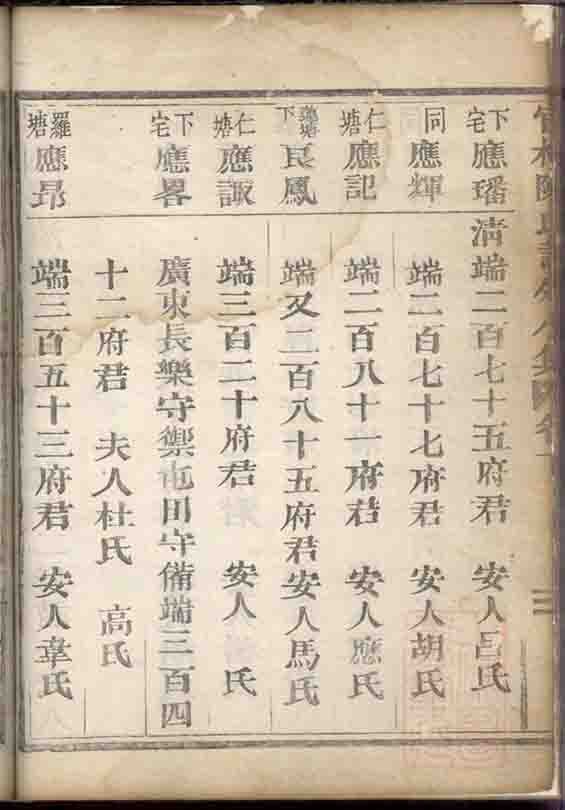 下宅 應璠 清端二百七十五府君 安人呂氏
同 應輝 端二百七十七府君 安人胡氏
仁塘 應記 端二百八十一府君 安人應氏
下 良鳳 端又二百八十五府君 安人馬氏
仁塘 應諏 端三百二十府君 安人 氏
下宅 應畧 廣東長樂守禦屯田守備端三百四
十二府君 夫人杜氏 高氏
羅塘 應昂 端三百五十三府君 安人章氏